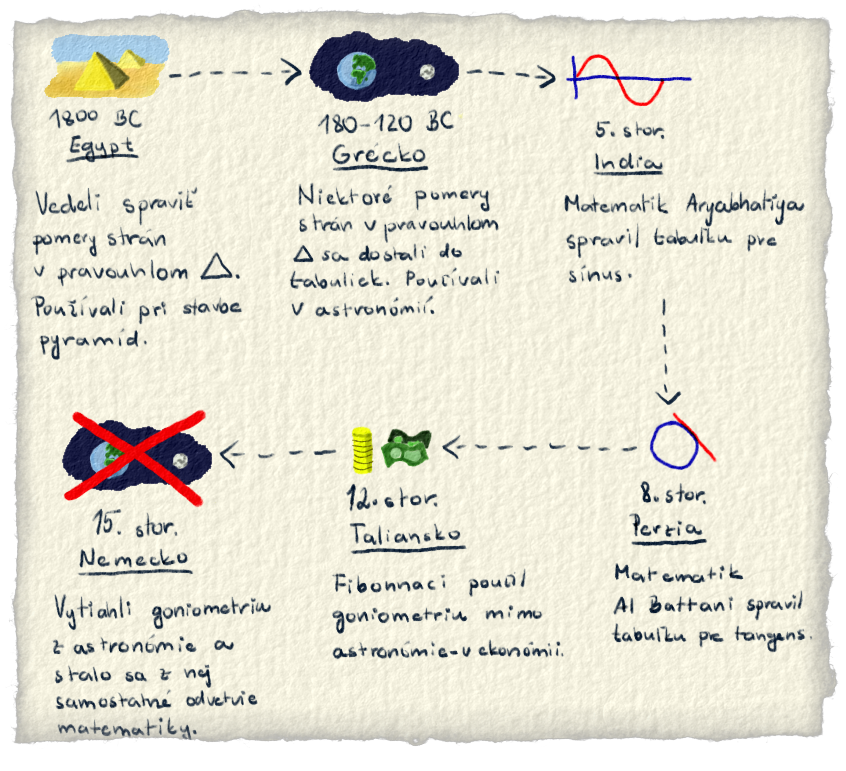 1800 BC
Egypt
Vedeli spraviť
pomery strán
v pravouhlom △.
Používali pri stavbe
pyramíd.
180-120 BC
Grécko
Niektoré pomery
strán v pravouhlom
△ sa dostali do
tabuliek. Používali
v astronómií.
5. stor.
India
Matematik Aryabhatiya
spravil tabuľku pre
sínus.
8. stor.
Perzia
Matematik
Al Battani spravil
tabuľku pre tangens.
12. stor.
Taliansko
Fibonnaci použil
goniometriu mimo
astronómie-v ekonómii.
15. stor.
Nemecko
Vytiahli goniometriu
z astronómie a
stalo sa z nej
samostatné odvetvie
matematiky.